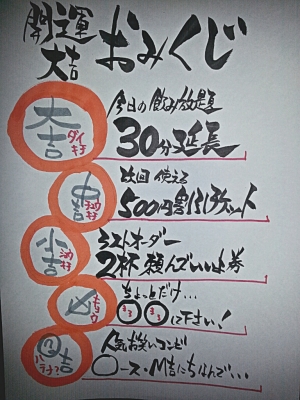 開運
大吉
おみくじ
大吉
ダイ
キチ
今日の飲み放題
30分延長
中吉
チュウ
キチ
次回使える
500円割引チケット
小吉
ラストオーダー
2杯頼んでいいよ券
凶
キョウ
ちょっとだけ...
○○に下さい!
?吉
ハテナ?
人気お笑いコンビ
○ース・M吉にちなんで...